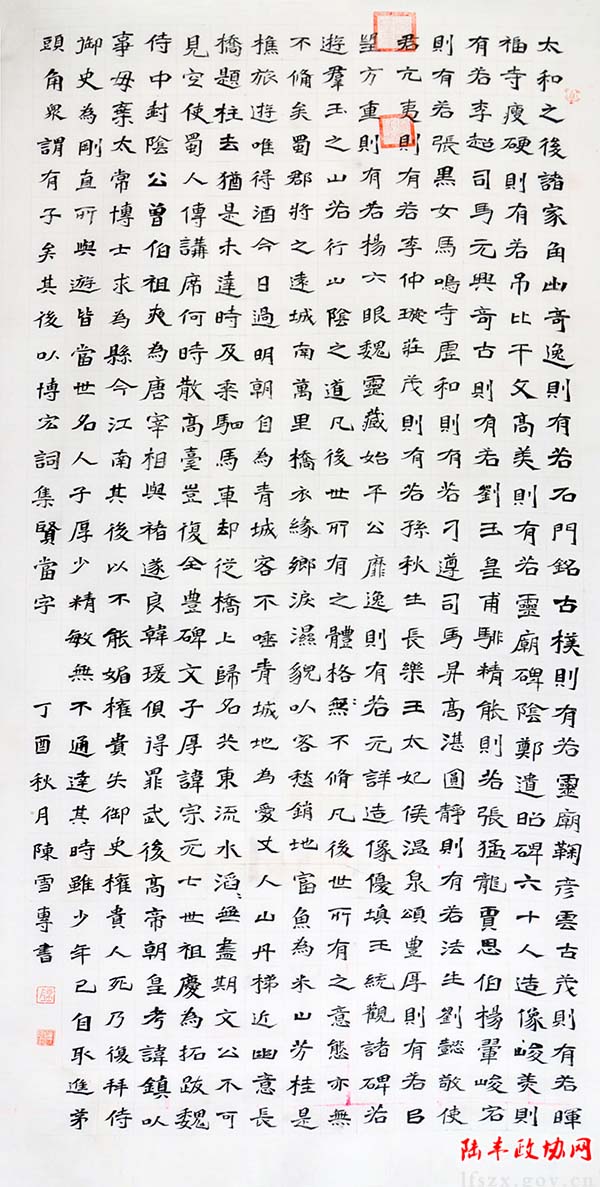 太和之後諸家角出奇逸則有若石門銘古樸則有若靈廟鞠彦雲古茂則有若暉
福寺瘦硬則有若吊比干文高美則有若靈廟碑陰鄭遣昭碑六十人造像峻美則
有若李超司馬元興奇古則有若劉玉皇甫驎精能則若張猛龍賈思伯楊翬峻宕
則有若張黑女馬鳴寺虛和則有若刁遵司馬昇高湛圓靜則有若法生劉懿敬使
君亢夷則有若李仲璇莊茂則有若孫秋生長樂王太妃侯溫泉頌豊厚則有若呂
望方重則有若楊大眼魏靈藏始平公靡逸則有若元詳造像優填王統觀諸碑若
遊羣玉之山若行山陰之道凡後世所有之體格無不脩凡後世所有之意態亦無
不脩矣蜀郡將之遠城南萬里橋衣緣鄉淚濕貌以客愁銷地富魚為米山芳桂是
樵旅遊唯得酒今日過明朝自為青城客不唾青城地為愛丈人山丹梯近幽意長
橋題柱去猶是未達時及来駟馬車却從橋上歸名共東流水滔滔無盡期文公不可
見空使蜀人傳講席何時散高臺豈復全豊碑文子厚諱宗元七世祖慶為拓跋魏
侍中封陰公曾伯祖奭為唐宰相與褚遂良韓瑗俱得罪武後高帝朝皇考諱鎮以
事母棄太常博士求為縣令江南其後以不能媚權貴失御史權貴人死乃復拜侍
御史為剛直所與遊皆當世名人子厚少精敏無不通達其時雖少年已自取進第
頭角眾謂有子矣其後以博宏詞集賢當字 丁酉秋月陳雪專書
陆丰政协网
lfszx.gov.cn